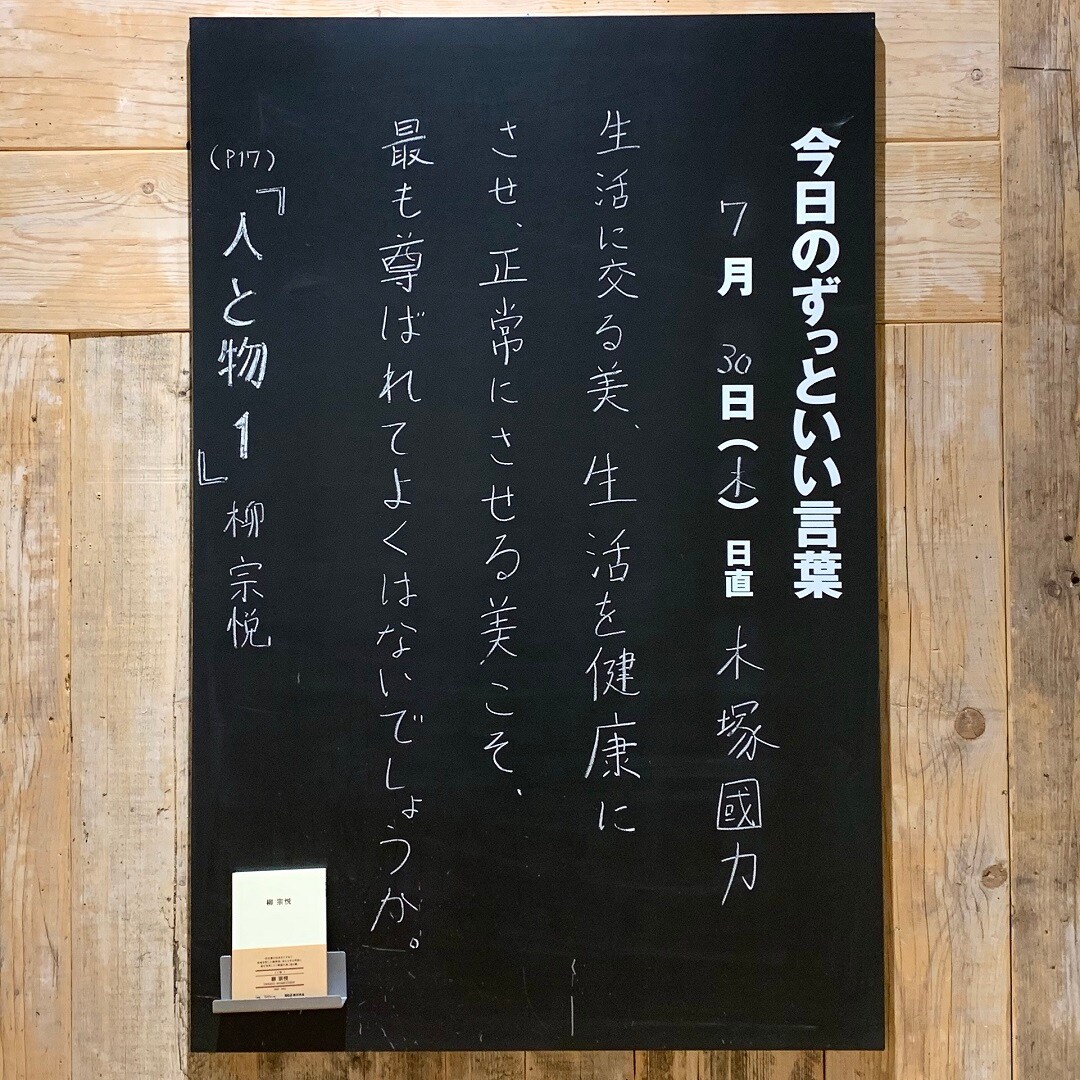 今日のずっといい言葉
7月30日(木) 日直 木塚國力
生活に交る美、生活を健康に
させ、正常にさせる美こそ、
最も尊ばれてよくはないでしょうか。
(P17)
『人と物1』柳宗悦
柳 宗悦
柳 宗悦